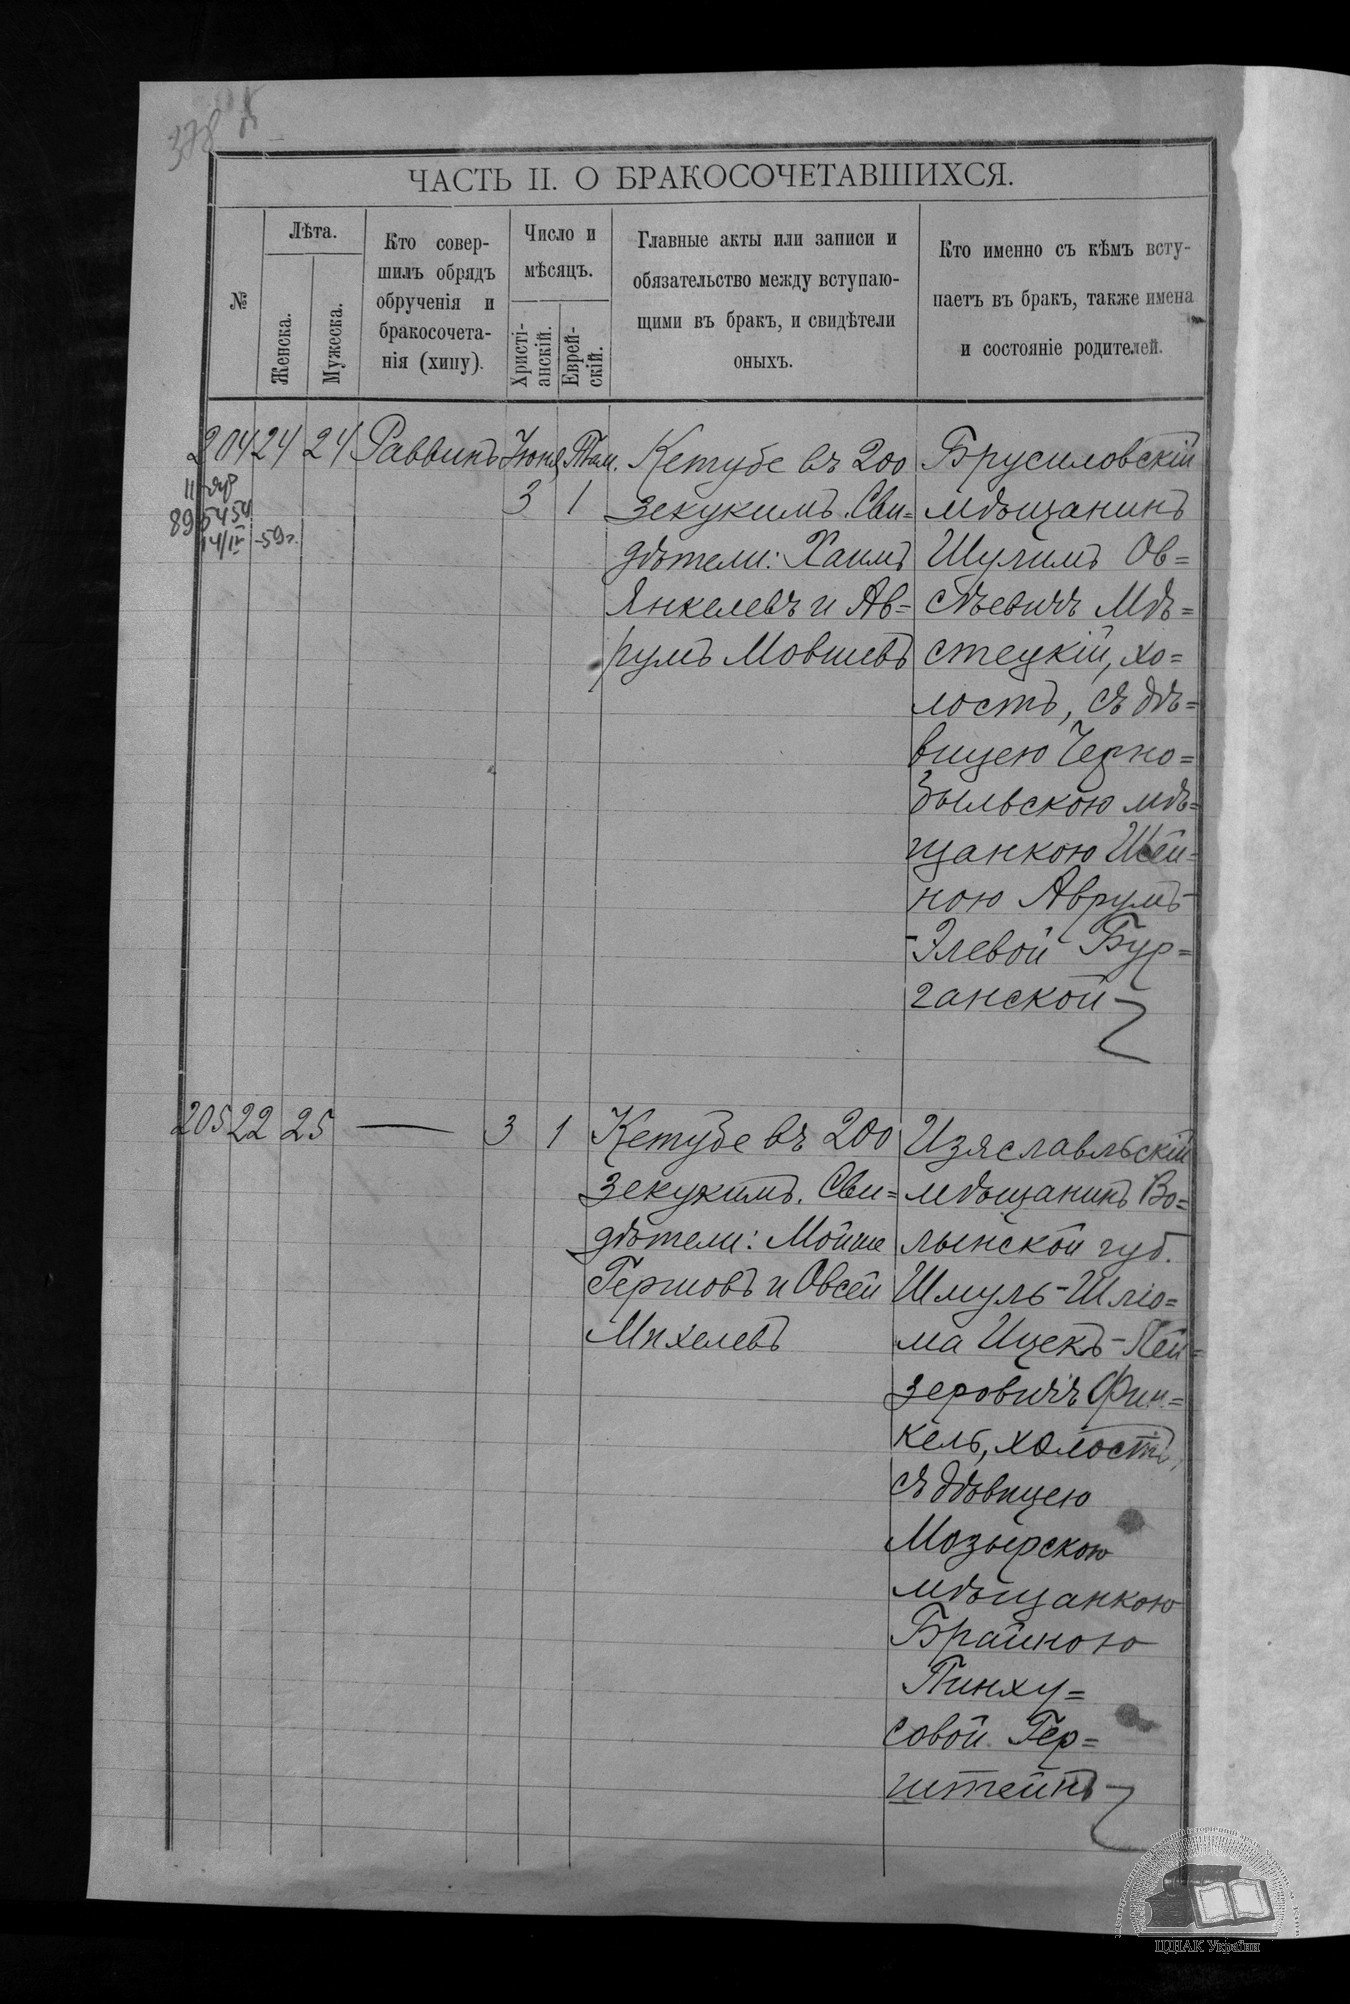 378
ЧАСТЬ II. О БРАКОСОЧЕТАВШИХСЯ.
№
Лѣта.
Женска.
Мужеска.
Кто совер-
шилъ обрядъ
обрученія и
бракосочета-
нія (хипу).
Число и
мѣсяцъ.
Христі-
анскій.
Еврей-
скій.
Главные акты или записи и
обязательство между вступаю-
щими въ брак, и свидѣтели
оныхъ.
Кто именно съ кѣмъ всту-
паетъ въ брак, также имена
и состояніе родителей.
204 24 24 Раввинъ Іюня Там.
3 1
89 5454
14/IV -59г.
Кетубе въ 200
зекукимъ. Сви=
дѣтели: Хаимъ
Янкелевъ и Ав=
румъ Мовшевъ
Брусиловскій
мѣщанинъ
Шулимъ Ов=
сѣевичъ Мѣ=
стецкій, хо=
лостъ, съ дѣ=
вицею Черно=
быльскою мѣ=
щанкою Шей=
ною Аврумъ-
-Элевой Бур=
ганской
205 22 25 — 3 1
Кетубе въ 200
зекукимъ. Сви=
дѣтели: Мойше
Гершовъ и Овсей
Михелевъ
Изяславльскій
мѣщанинъ Во=
лынской губ.
Шмуль-Шлio=
ма Ицекъ-Лей=
зеровичъ Фин=
кель, холостъ,
съ дѣвицею
Мозырскою
мѣщанкою
Брайною
Пинху=
совой Гер=
штейнъ
ЦДІАК України